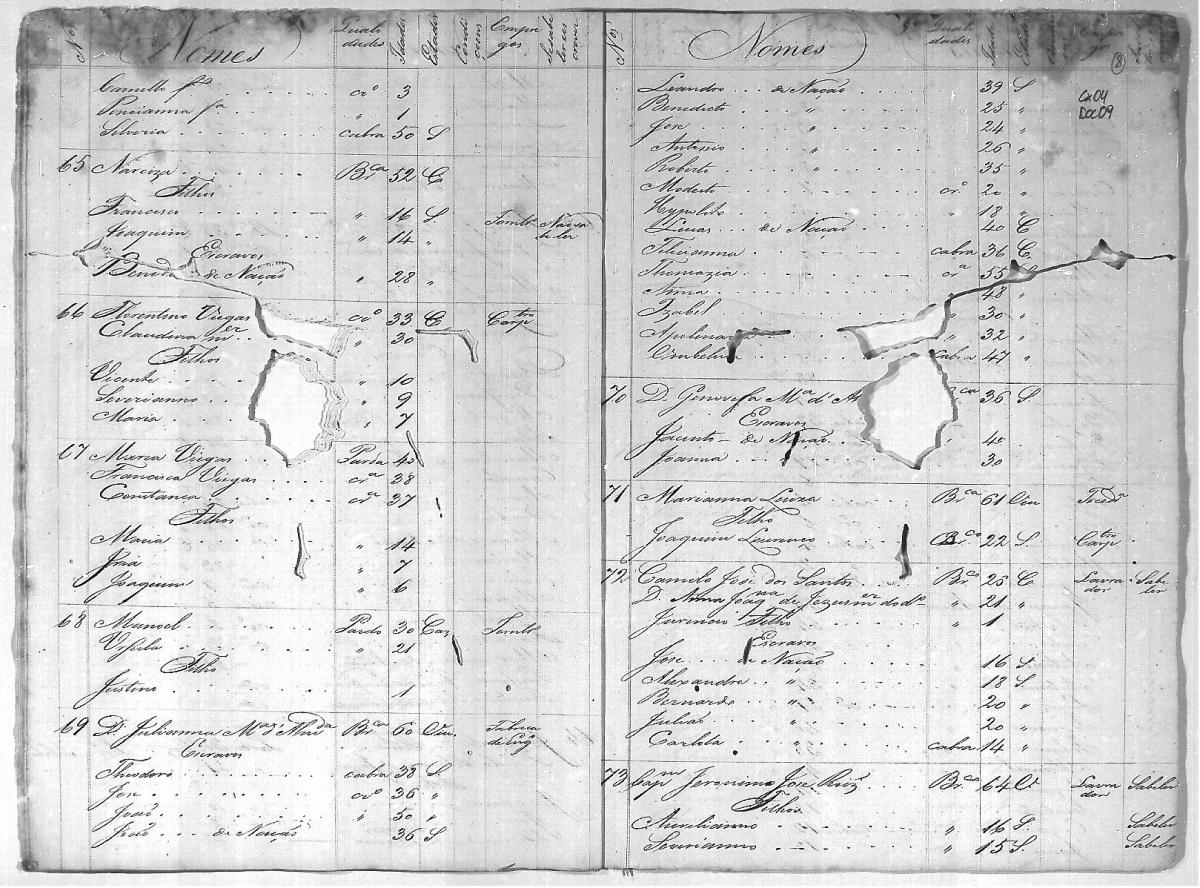 Nos Nomes Quali dades Idades Estados Condi coens Empre gos Sendo livres
Camillo fº crº 3
Poncianna fª " 1
Silveria cabra 50 S
65 Narciza Brca 52 C
Filhos
Francisco " 16 S.
Joaquim " 14 "
Escravos
de Nação " 28 "
66 Florentino Viegas crº 33 C Carptro
Claudina mer " 30
Filhos
Vicente " 10
Severianno " 9
Maria " 7
67 Maria Viegas Parda 40
Francisca Viegas crª 28
Constança crª 37
Filhos
Maria " 14
Joaquim " 6
68 Manoel Pardo 30 Caz
Ursula " 21
Filho
Justino 1
69 D. Julianna Brca 60
Escravos
Theodoro cabra 38 S.
Jose crº 36 "
João " 50 "
João de Nação 36 S
Nos Nomes Quali dades Idades
8
Cx04
Doc09
Leandro de Nação 39 S
Benedicto " 25 "
Jose " 24 "
Antonio " 26 "
Roberto " 35 "
Modesto crº 20 "
Hypolito " 18 "
Lucas de Nação 40 C
Felicianna cabra 36 C.
Thomazia crª 55
Anna 48 "
Izabel " 30 "
" 32 "
cabra 47 "
70 D. Genovefa Mª d' 36 S.
Escravos
Jacinto de Nação 40
Joanna 30
71 Marianna Luiza Brca 61
Filho
Joaquim Lourenço Brco 22 S. Carptro
72 Camelo Jose dos Santos Brco 25 C Lavra dor Sabe ler
D. Anna Joaqna de Jezus mer do dº " 21 "
Juvencio Filho " 1
Escravos
Jose de Nação 16 S.
Alexandre " 18 S.
Bernardo " 20 "
Julião " 20 "
Carlota " cabra 14 "
73 Capm Jeronimo Jose Brco 64 Lavra dor Sabe ler
Filhos
Aureliano " 16 S. Sabe ler
Severianno " 15 S. Sabe ler